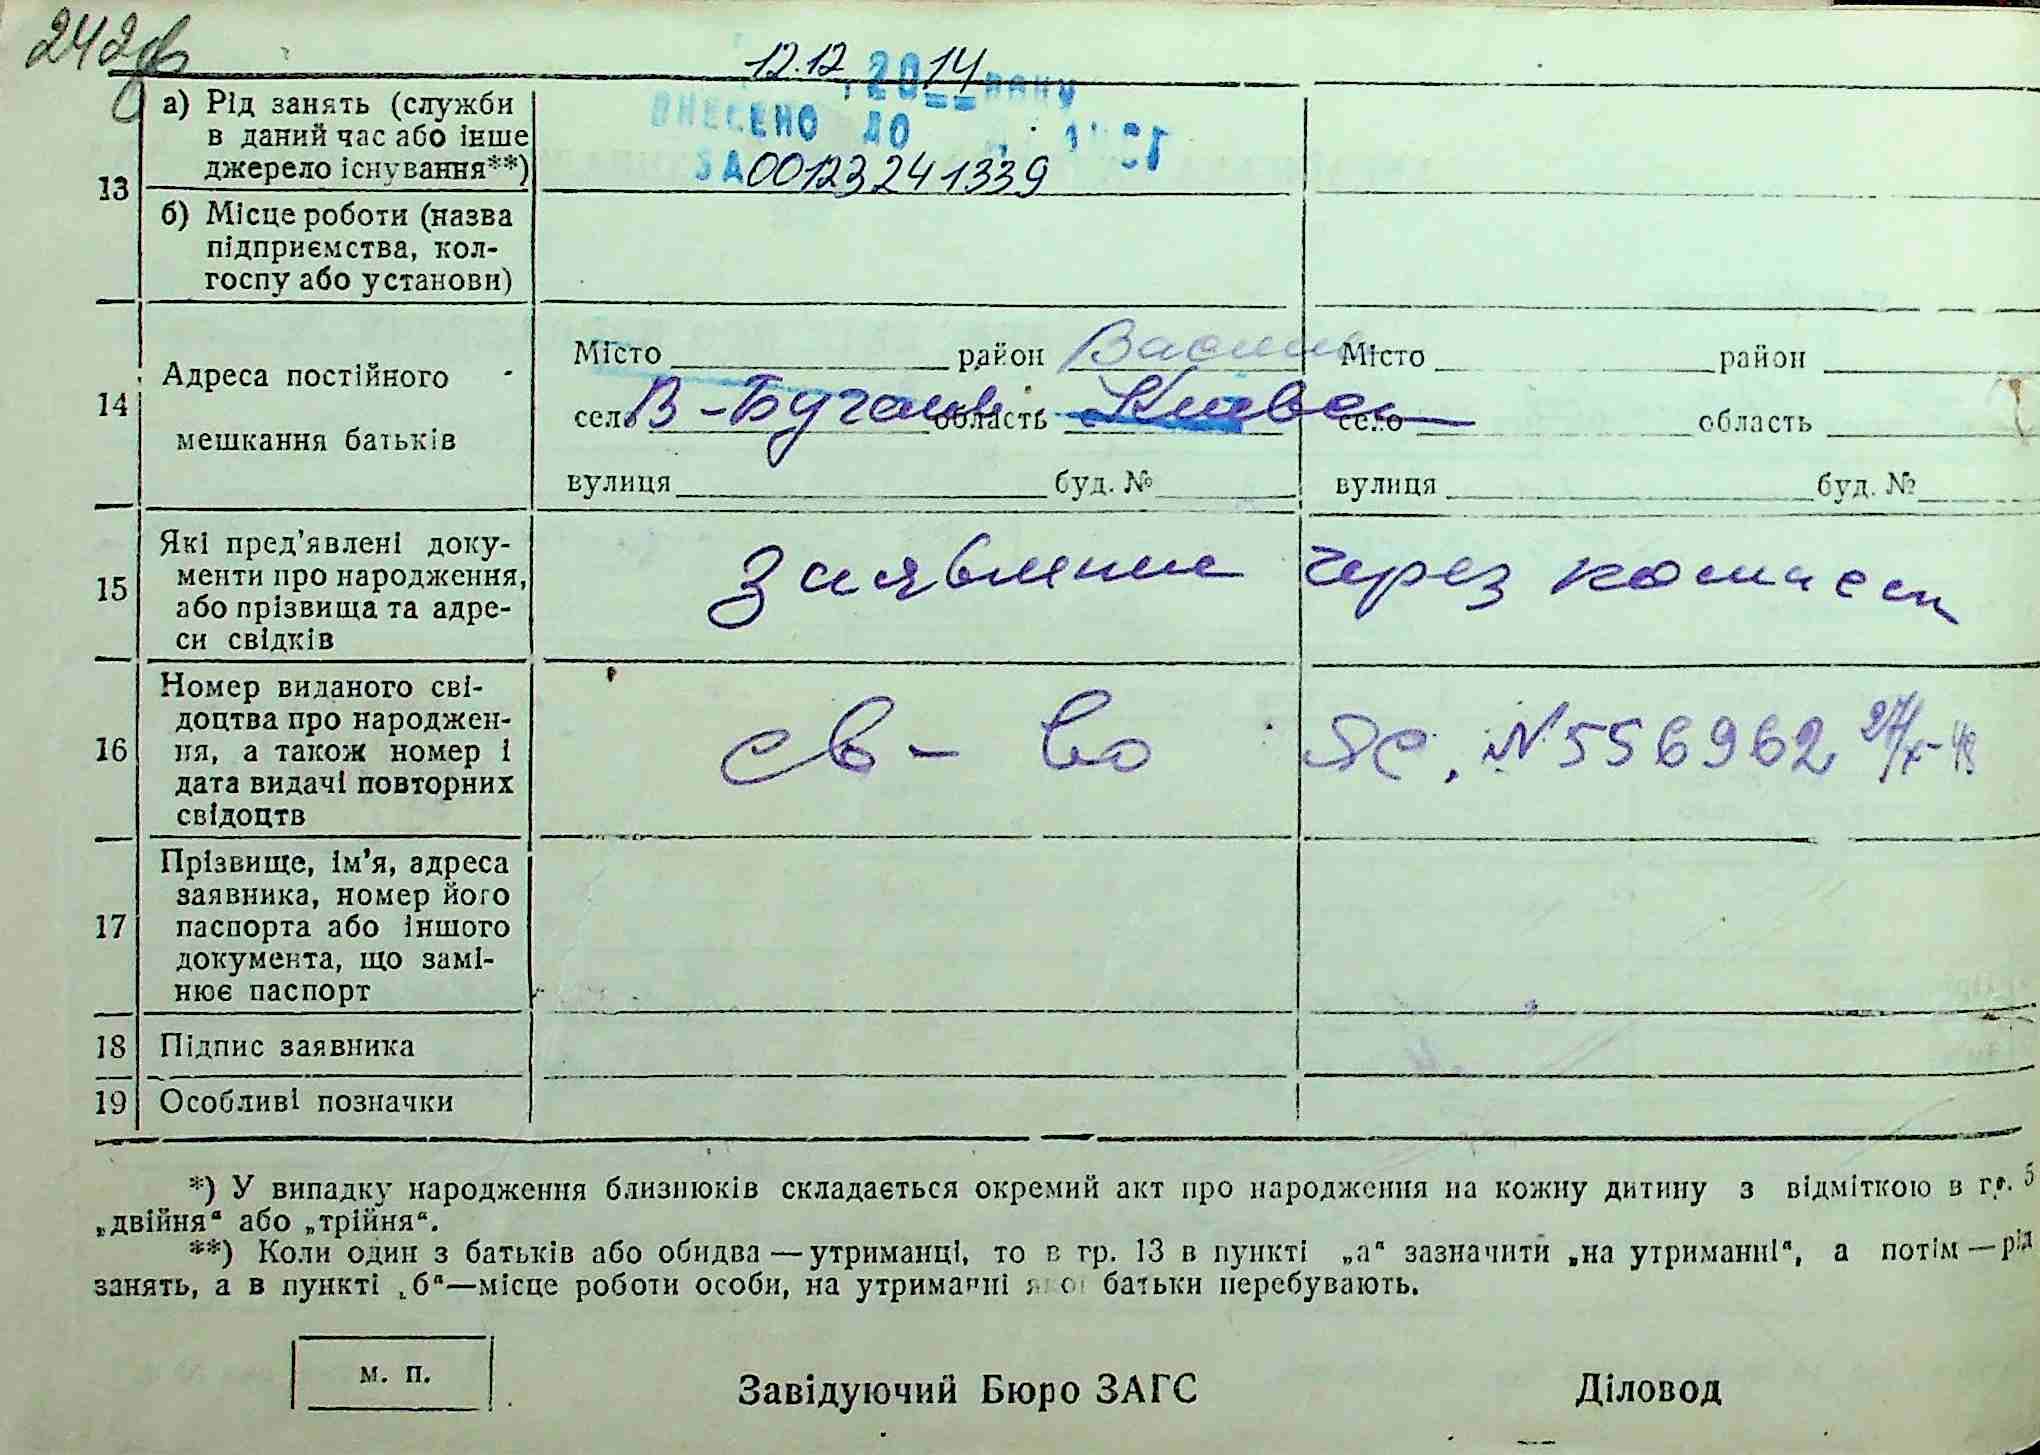 242зв
12.12.2014 року
ВНЕСЕНО ДО
ЗА 00123241339
13
а) Рід занять (служби
в даний час або інше
джерело існування**)
б) Місце роботи (назва
підприємства, кол-
госпу або установи)
14
Адреса постійного
мешкання батьків
Місто район Васильк Місто район
село В-Бугаевк область Киевск село область
вулиця буд. № вулиця буд. №
15
Які пред’явлені доку-
менти про народження,
або прізвища та адре-
си свідків
Заявление через
16
Номер виданого сві-
доцтва про народжен-
ня, а також номер і
дата видачі повторних
свідоцтв
св-во ЯС. N 556962 27/X-48
17
Прізвище, ім’я, адреса
заявника, номер його
паспорта або іншого
документа, що замі-
нює паспорт
18 Підпис заявника
19 Особливі позначки
*) У випадку народження близнюків складається окремий акт про народження на кожну дитину з відміткою в гр. 5
„двійня“ або „трійня“.
**) Коли один з батьків або обидва — утриманці, то в гр. 13 в пункті „а“ зазначити „на утриманні“, а потім — рід
занять, а в пункті „б“—місце роботи особи, на утриманні якої батьки перебувають.
м. п.
Завідуючий Бюро ЗАГС Діловод